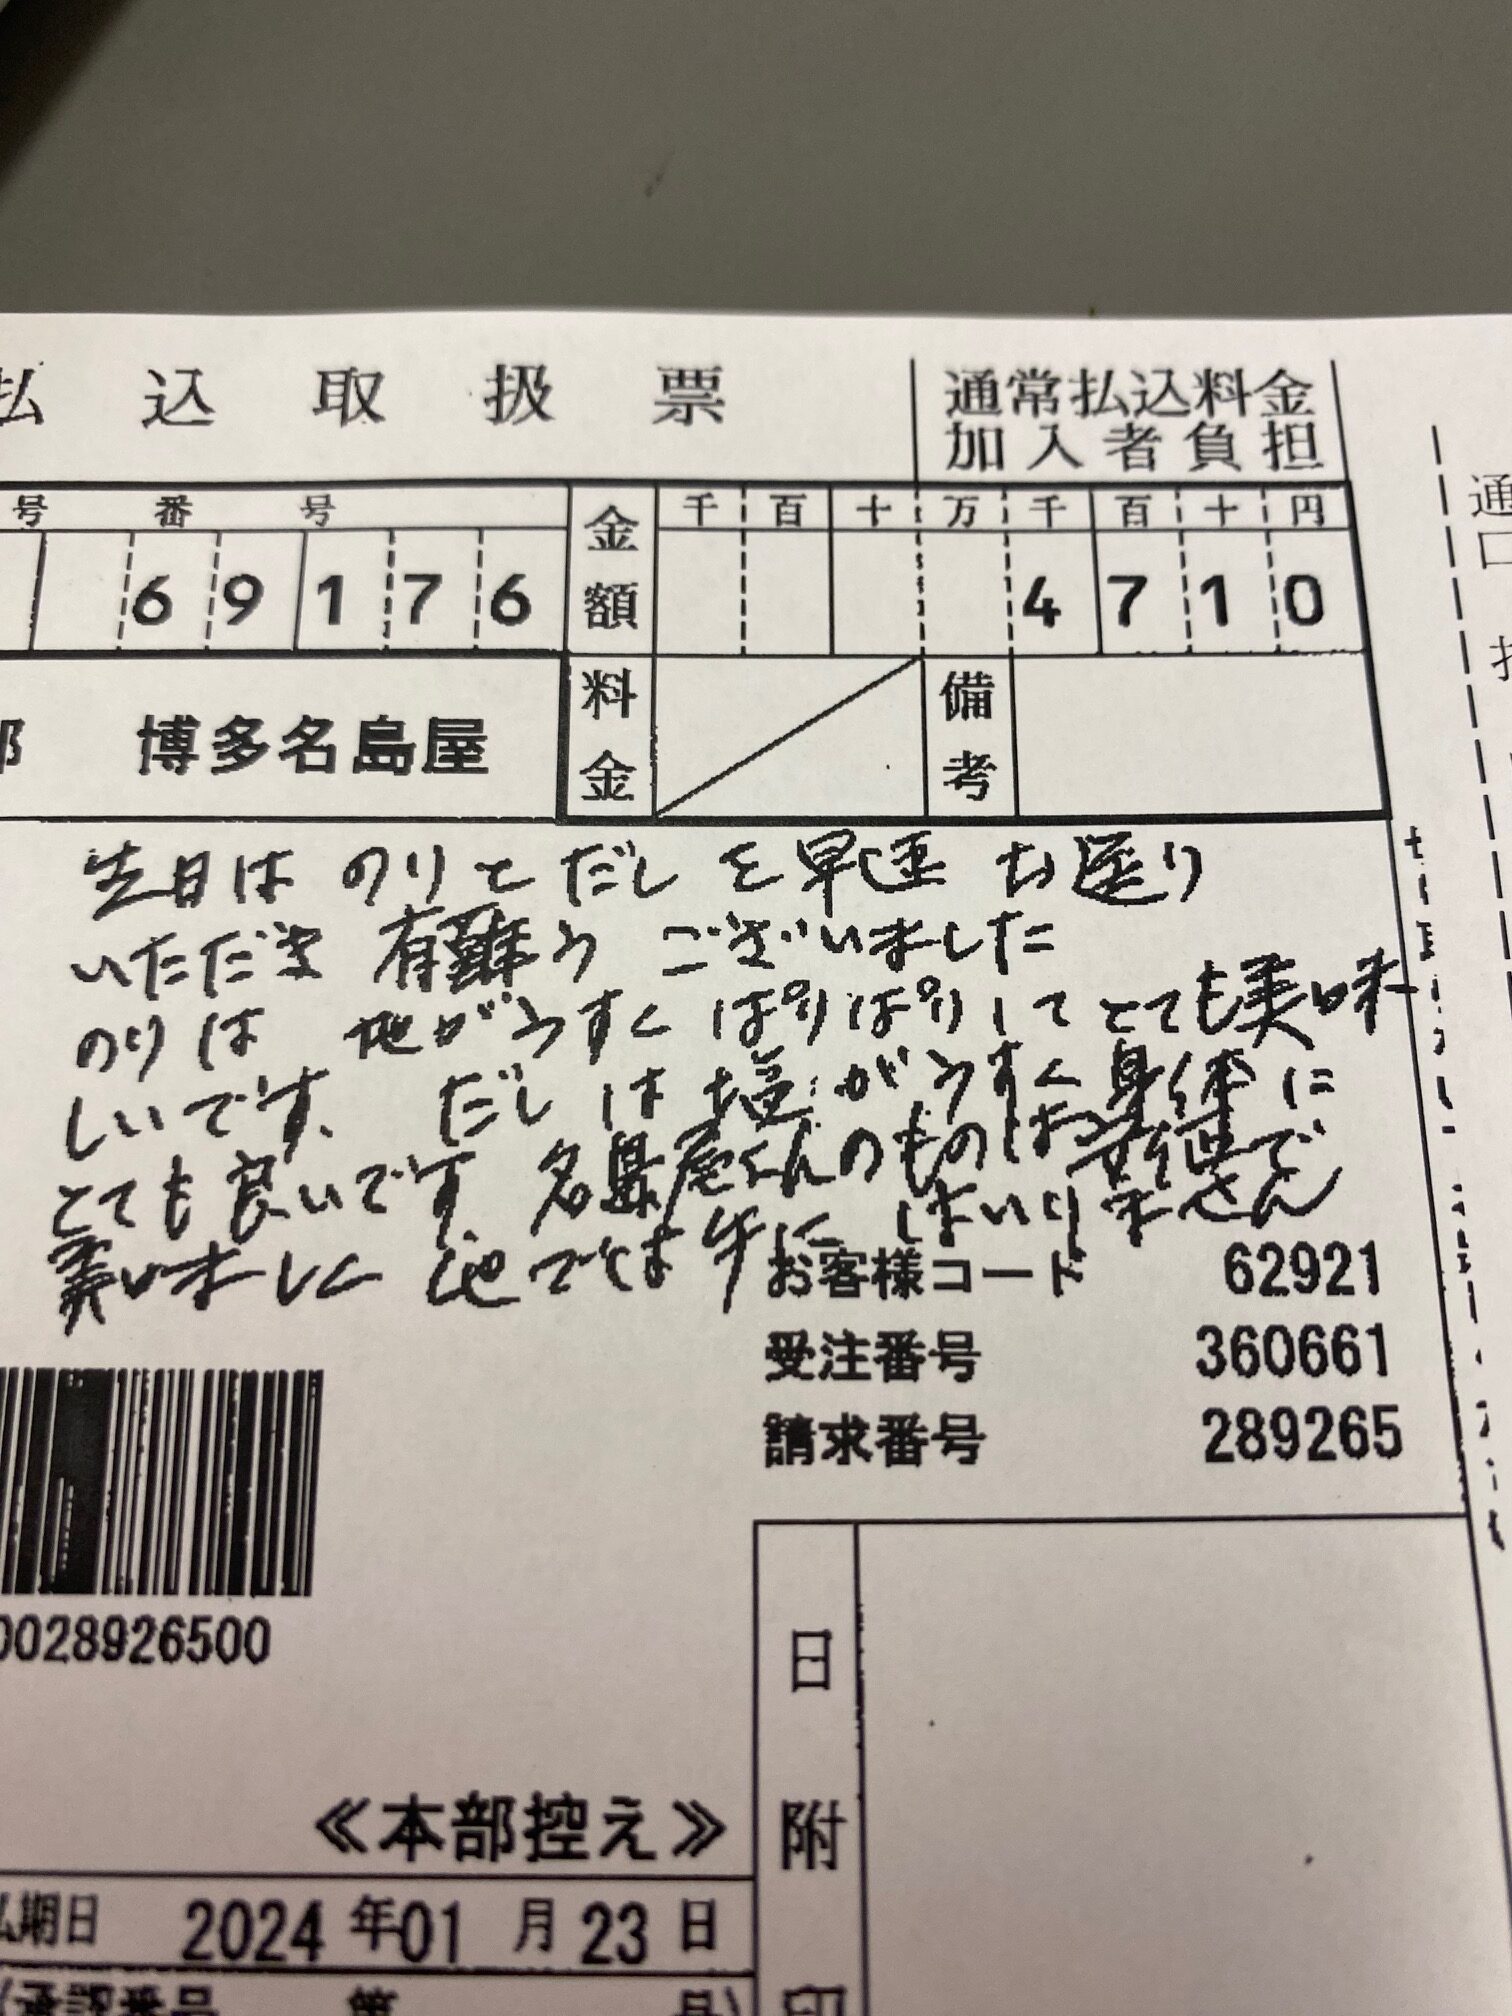 払込取扱票
通常払込料金
加入者負担
号 番 号
金額
千 百 十 万 千 百 十 円
6 9 1 7 6
4 7 1 0
料金
備考
博多名島屋
先日は のりとだしを早速 お送り
いただき 有難う ございました
のりは 地がうすく ぱりぱりして とても美味
しいです、だしは 塩がうすく 身体に
とても良いです、名島屋さんのものはお安価で
美味しく 他では手に はいりません
お客様コード 62921
受注番号 360661
請求番号 289265
0028926500
≪本部控え≫
払期日 2024年01月23日
日附印
(承認番号 第 号)